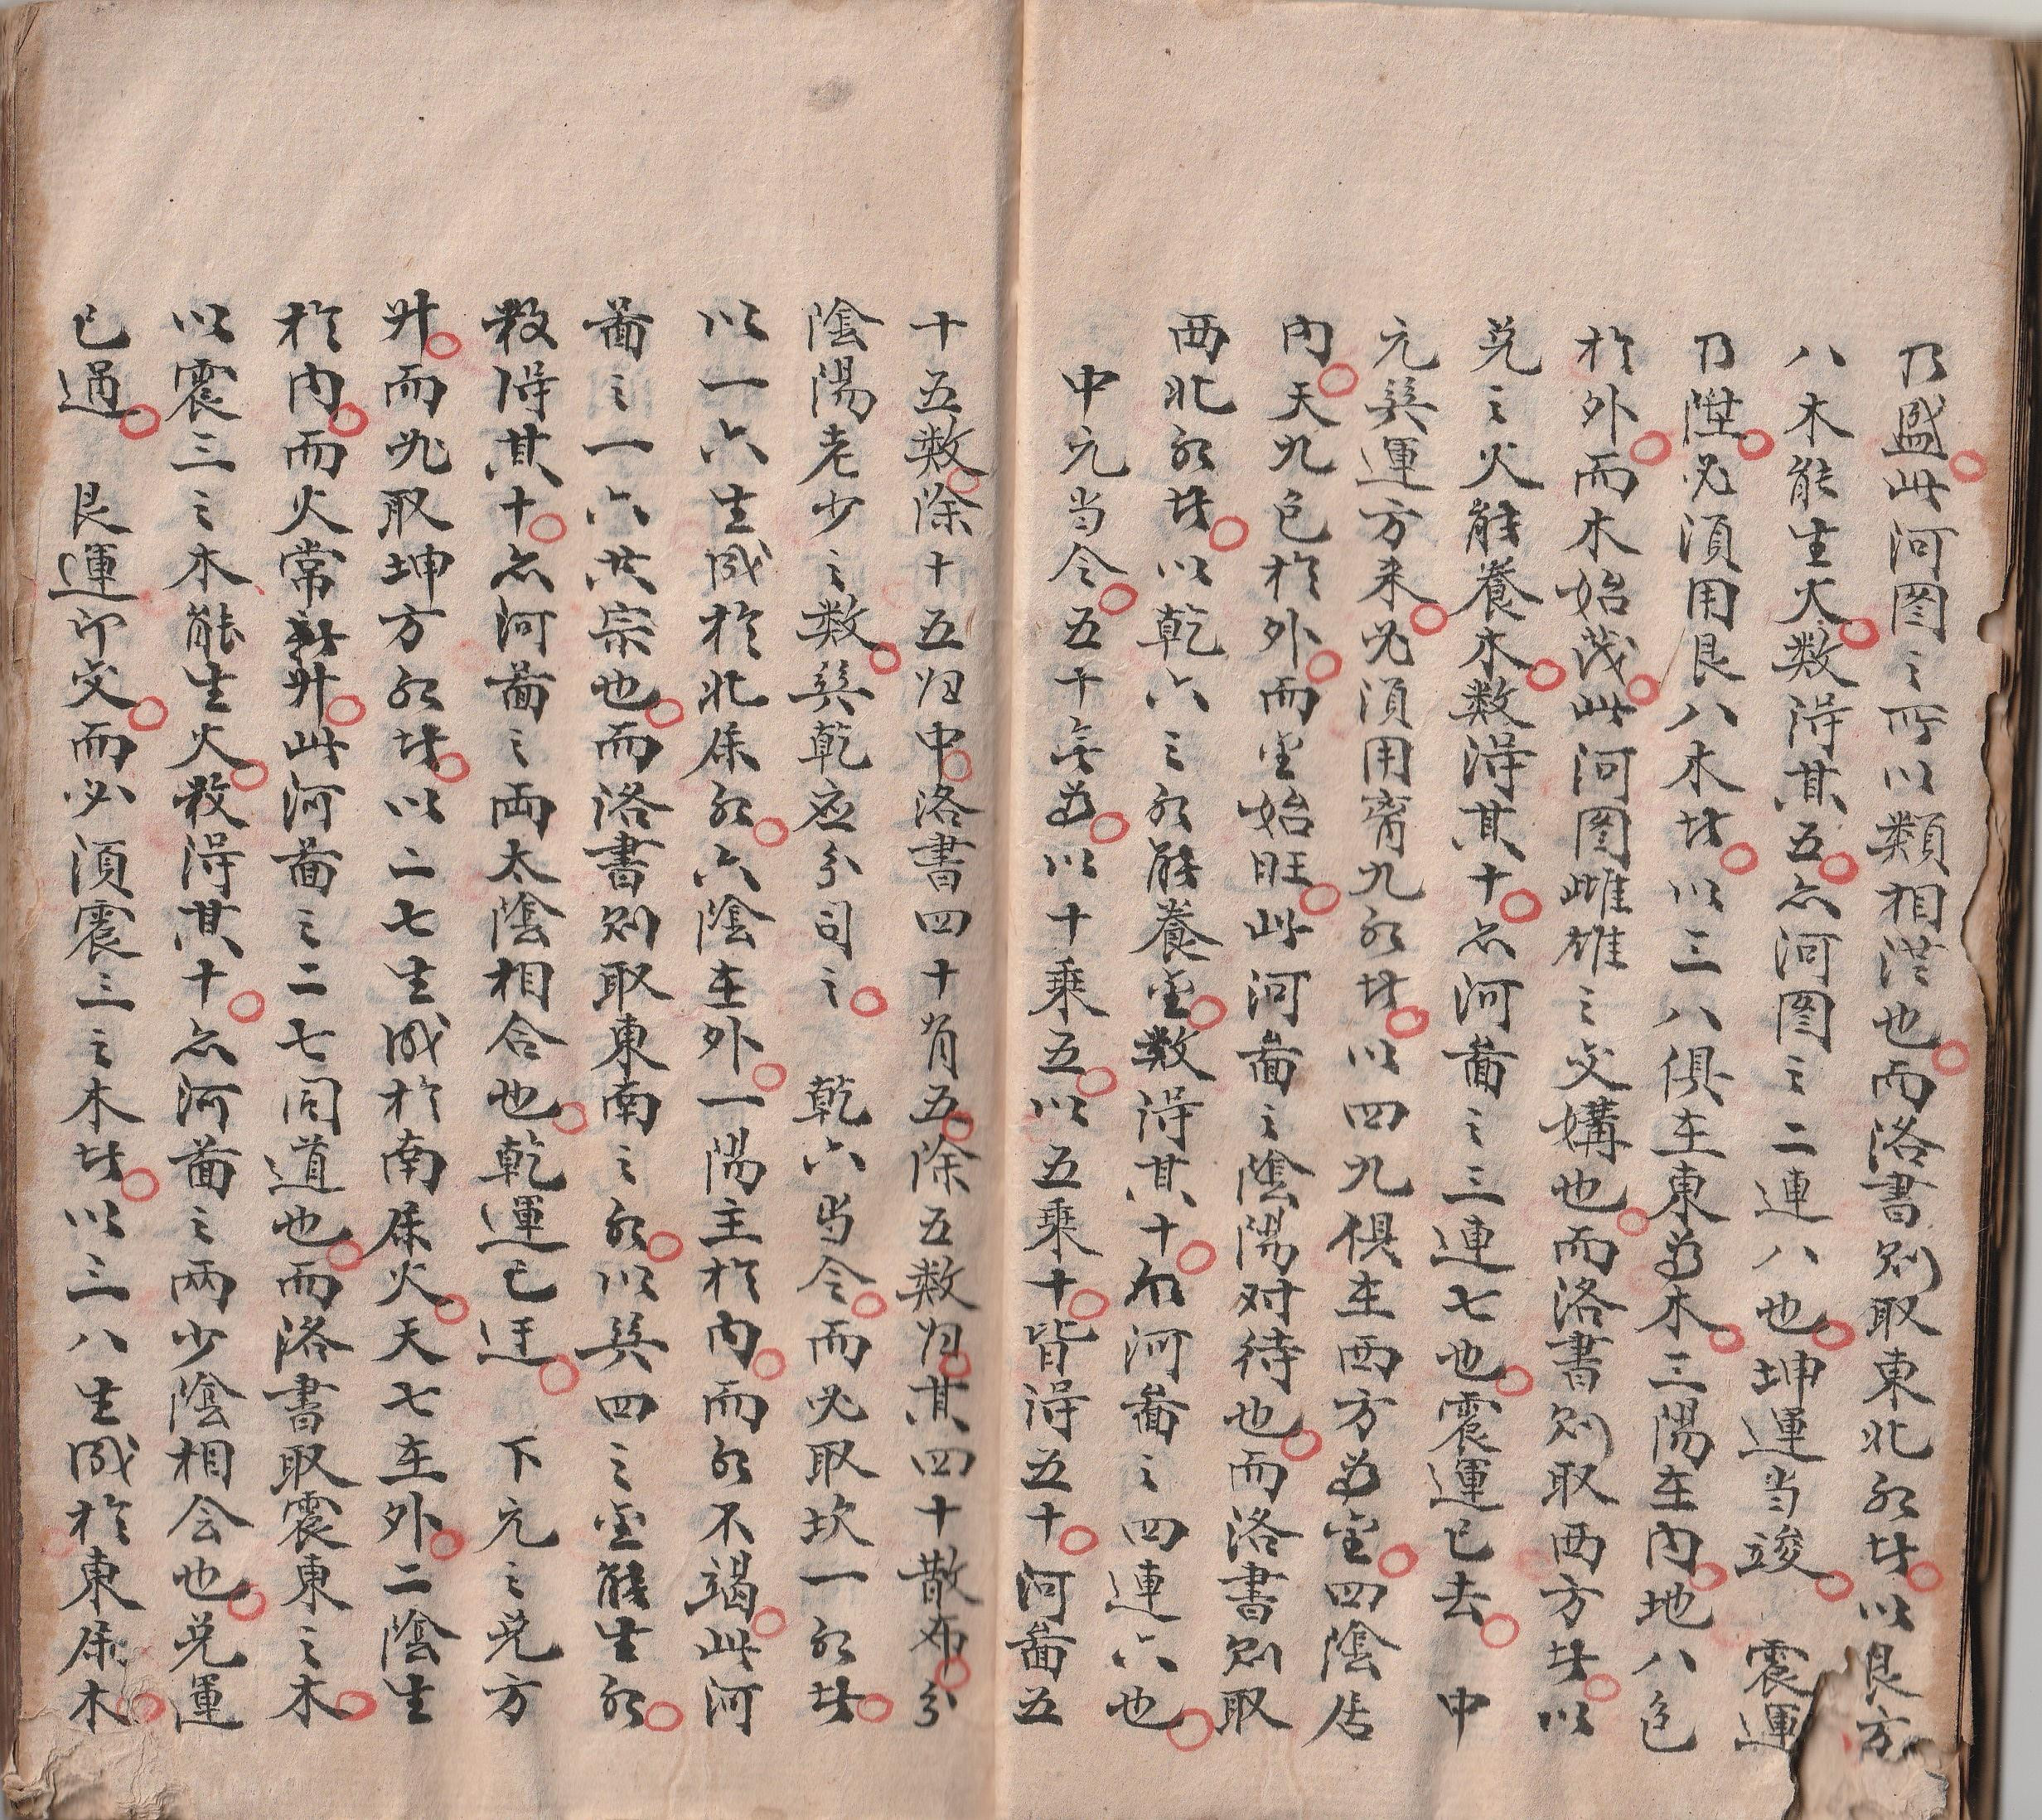 乃盛此河图之所以類相從也而洛書则取東北水妙以艮方
八木能生火数得其五亦河图之二連八也坤運当竣　震運
乃陞必須用艮八木妙以三八俱在東為木三陽在内地八色
於外而木始茂此河图雌雄之交媾也而洛書则取西方妙以
兑之火能養木数得其十亦河啚之三連七也震運已去　中
元巽運方来必須用离九水妙以四九俱在西方為金四陰居
内天九色於外而金始旺此河啚之陰陽对待也而洛書则取
西北水妙以乾六之水能養金数得其十亦河啚之四連六也
中元当令五十無為以十乘五以五乘十皆得五十河啚五
十五数除十五归中洛書四十有五除五数归其四十散布分
陰陽老少之数巽乾应分司之　乾六当令而必取坎一水妙
以一六生成於北属水六陰在外一陽主於内而水不竭此河
啚之一六共宗也而洛書则取東南之水以巽四之金能生水
数得其十亦河啚之両太陰相合也乾運已迋　下元之兑方
升而必取坤方水妙以二七生成於南属火天七在外二陰生
於内而火常升此河啚之二七同道也而洛書取震東之木
以震三之木能生火数得其十亦河啚之两少陰相会也兑運
已過　艮運卬交而必須震三之木妙以三八生成於東属木